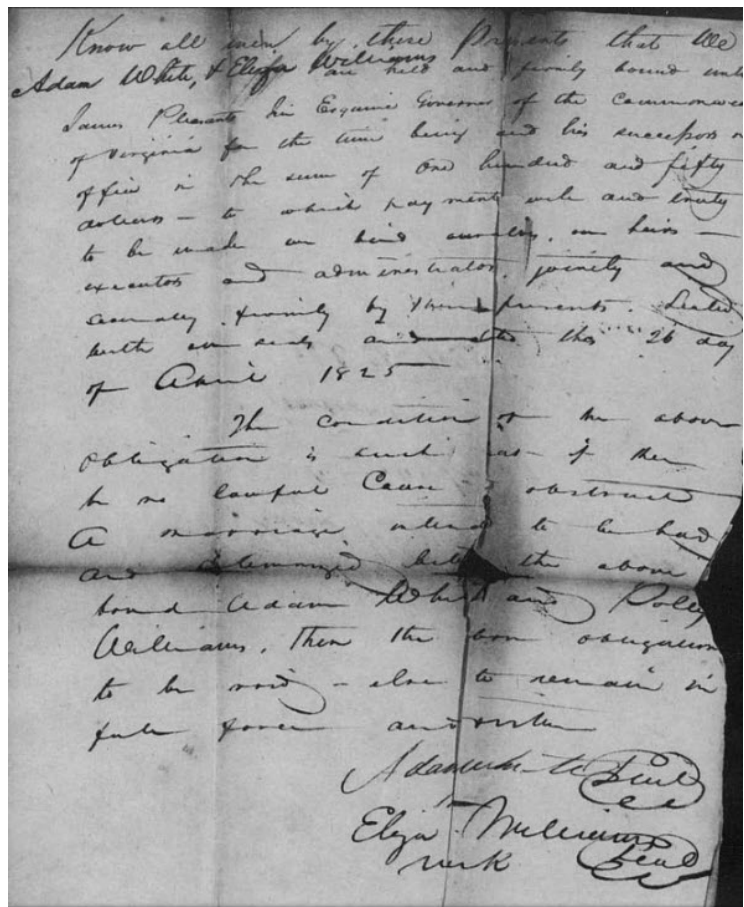 Know all men by these Presents that We
Adam White, & Elija Williams are held and firmly bound unto
James Pleasants Jun Esquire Governor of the Commonwea
of Virginia for the time being and his successors in
office in the sum of One hundred and fifty
dollars – to which payment well and truly
to be made we bind ourselves, our heirs –
executors and administrators, jointly and
severally firmly by these presents. Sealed
with our seals and this 26 day
of April 1825
The condition of the above
obligation is such as – if there
be no lawful Cause obstruct
A marriage intend to be had
and the above
bound Adam White and Polly
Williams, Then the obligation
to be void – else to remain in
full force and virtue
Adam White Seal
Elija Williams Seal